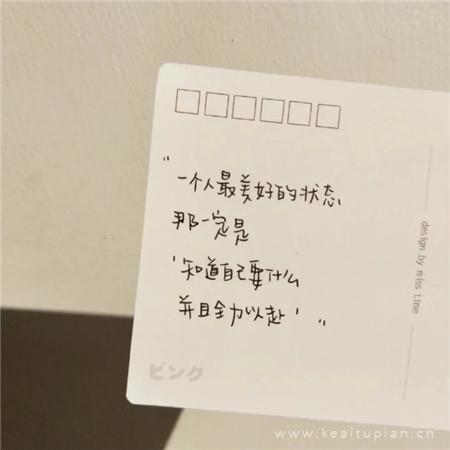 “一个人最美好的状态
那一定是
‘知道自己要什么
并且全力以赴’”
design by miss time
ピンク
www.keaitupian.cn